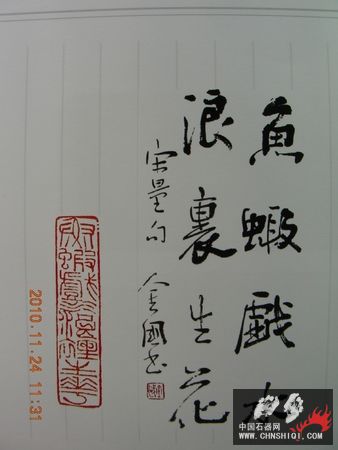 魚蝦戲水
浪裏生花
宋量句 金國书
2010.11.24 11:31
中国石器网
WWW.CHNSHIQI.COM